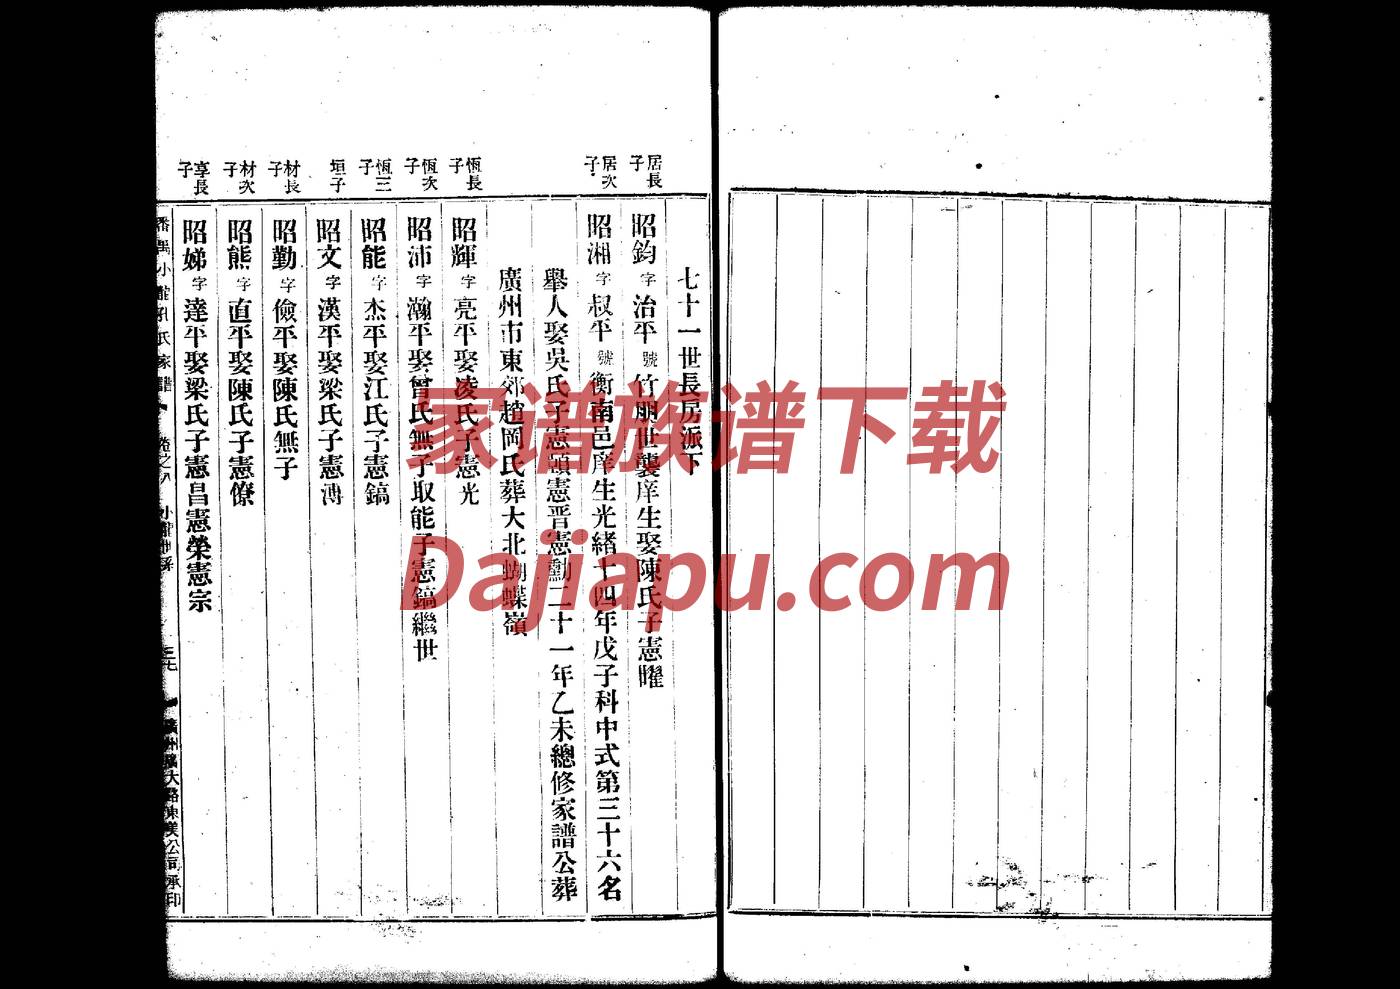 七十一世長房派下
居長子
昭鈞字治平號竹朋世襲庠生娶陳氏子憲曜
居次子
昭湘字叔平號衡南邑庠生光緒十四年戊子科中式第三十六名
舉人娶吳氏子憲頤憲晋憲勳二十一年乙未總修家譜公葬
廣州市東郊趙岡氏葬大北蝴蝶嶺
恆長子
昭輝字亮平娶凌氏子憲光
恆次子
昭沛字瀚平娶曾氏無子取能子憲鎬繼世
恆三子
昭能字杰平娶江氏子憲鎬
垣子
昭文字漢平娶梁氏子憲溥
材長子
昭勤字儉平娶陳氏無子
材次子
昭熊字直平娶陳氏子憲僚
享長子
昭娣字達平娶梁氏子憲昌憲榮憲宗
番禺小龍孔氏家譜 卷之八 小龍世系 三七 廣州 大路 美公司承印
家谱族谱下载
Dajiapu.com